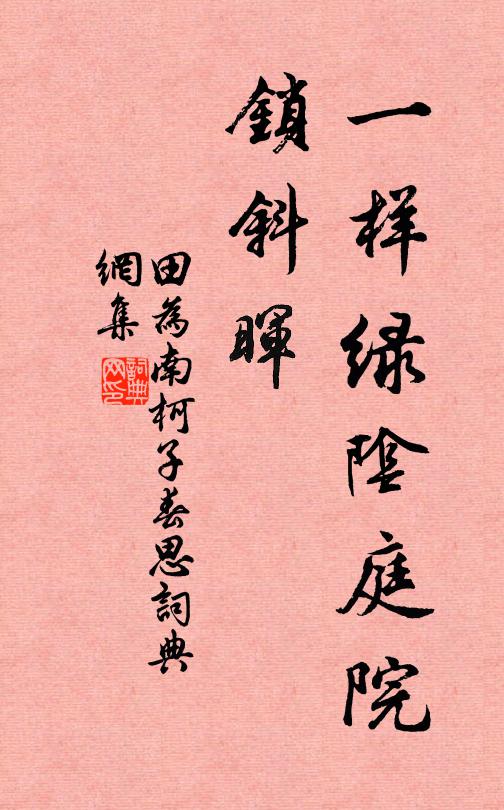 一样绿陰庭院
鎖斜暉
田為南柯子春思詞典
網集
詞典
网印